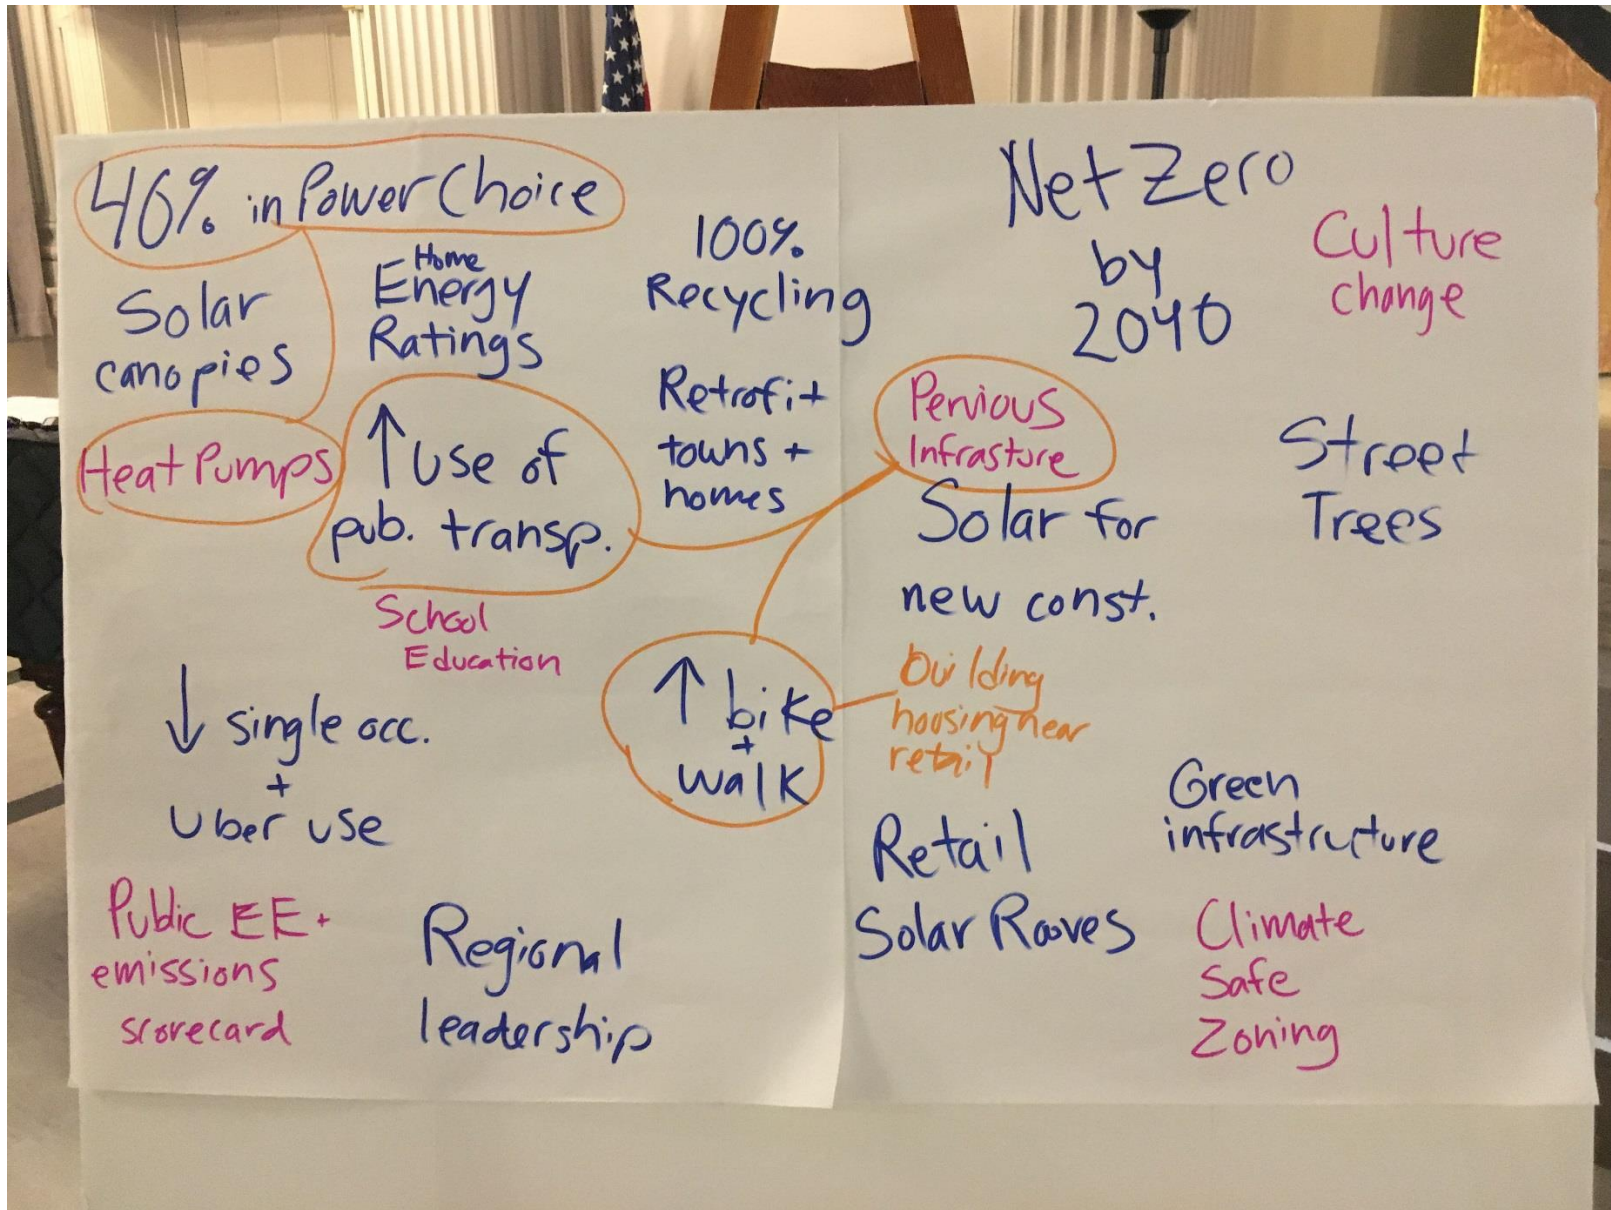 40% in Power Choice
Solar
canopies
Home
Energy
Ratings
100%
Recycling
Heat Pumps
↑ Use of
pub. transp.
Retrofit
towns +
homes
School
Education
↓ single occ.
+
Uber use
↑ bike
+
walk
Public EE +
emissions
scorecard
Regional
leadership
Net Zero
by
2040
Culture
change
Pervious
Infrasture
Street
Trees
Solar for
new const.
building
housing near
retail
Retail
Solar Rooves
Green
infrastructure
Climate
Safe
Zoning